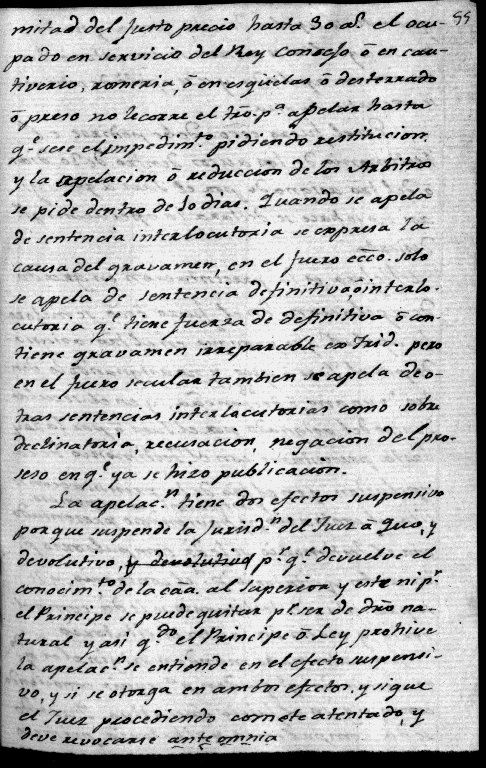 55
mitad del justo precio hasta 30 as. el ocu-
pado en servicio del Rey Consejo ò en cau-
tiverio, romeria, ò en esqüelas ò desterrado
ò preso no le corre el tro. pa. apelar hasta
qe. sese el impedimto. pidiendo restitucion,
y la apelacion ò reduccion de los Arbitros
se pide dentro de 10 dias. Quando se apela
de sentencia interlocutoria se expresa la
causa del gravamen, en el fuero ecco. solo
se apela de sentencia definitiva, ò interlo-
cutoria qe. tiene fuerza de definitiva ò con-
tiene gravamen irreparable ex Trid. pero
en el fuero secular tambien se apela de o-
tras sentencias interlocutorias como sobre
declinatoria, recusacion, negacion del pro-
seso en qe. ya se hizo publicacion.
La apelacn. tiene dos efectos suspensivo
porque suspende la Jurisdn. del Juez à Quo, y
devolutivo, y devolutivo pr. qe. devuelve el
conocimto. de la caa. al superior y este ni pr.
el Principe se puede quitar pr. ser de dro na-
tural y asi qdo. el Principe ò Ley prohive
la apelacn. se entiende en el efecto suspensi-
vo, y si se otorga en ambos efectos, y sigue
el Juez procediendo comete atentado, y
deve revocarse ante omnia